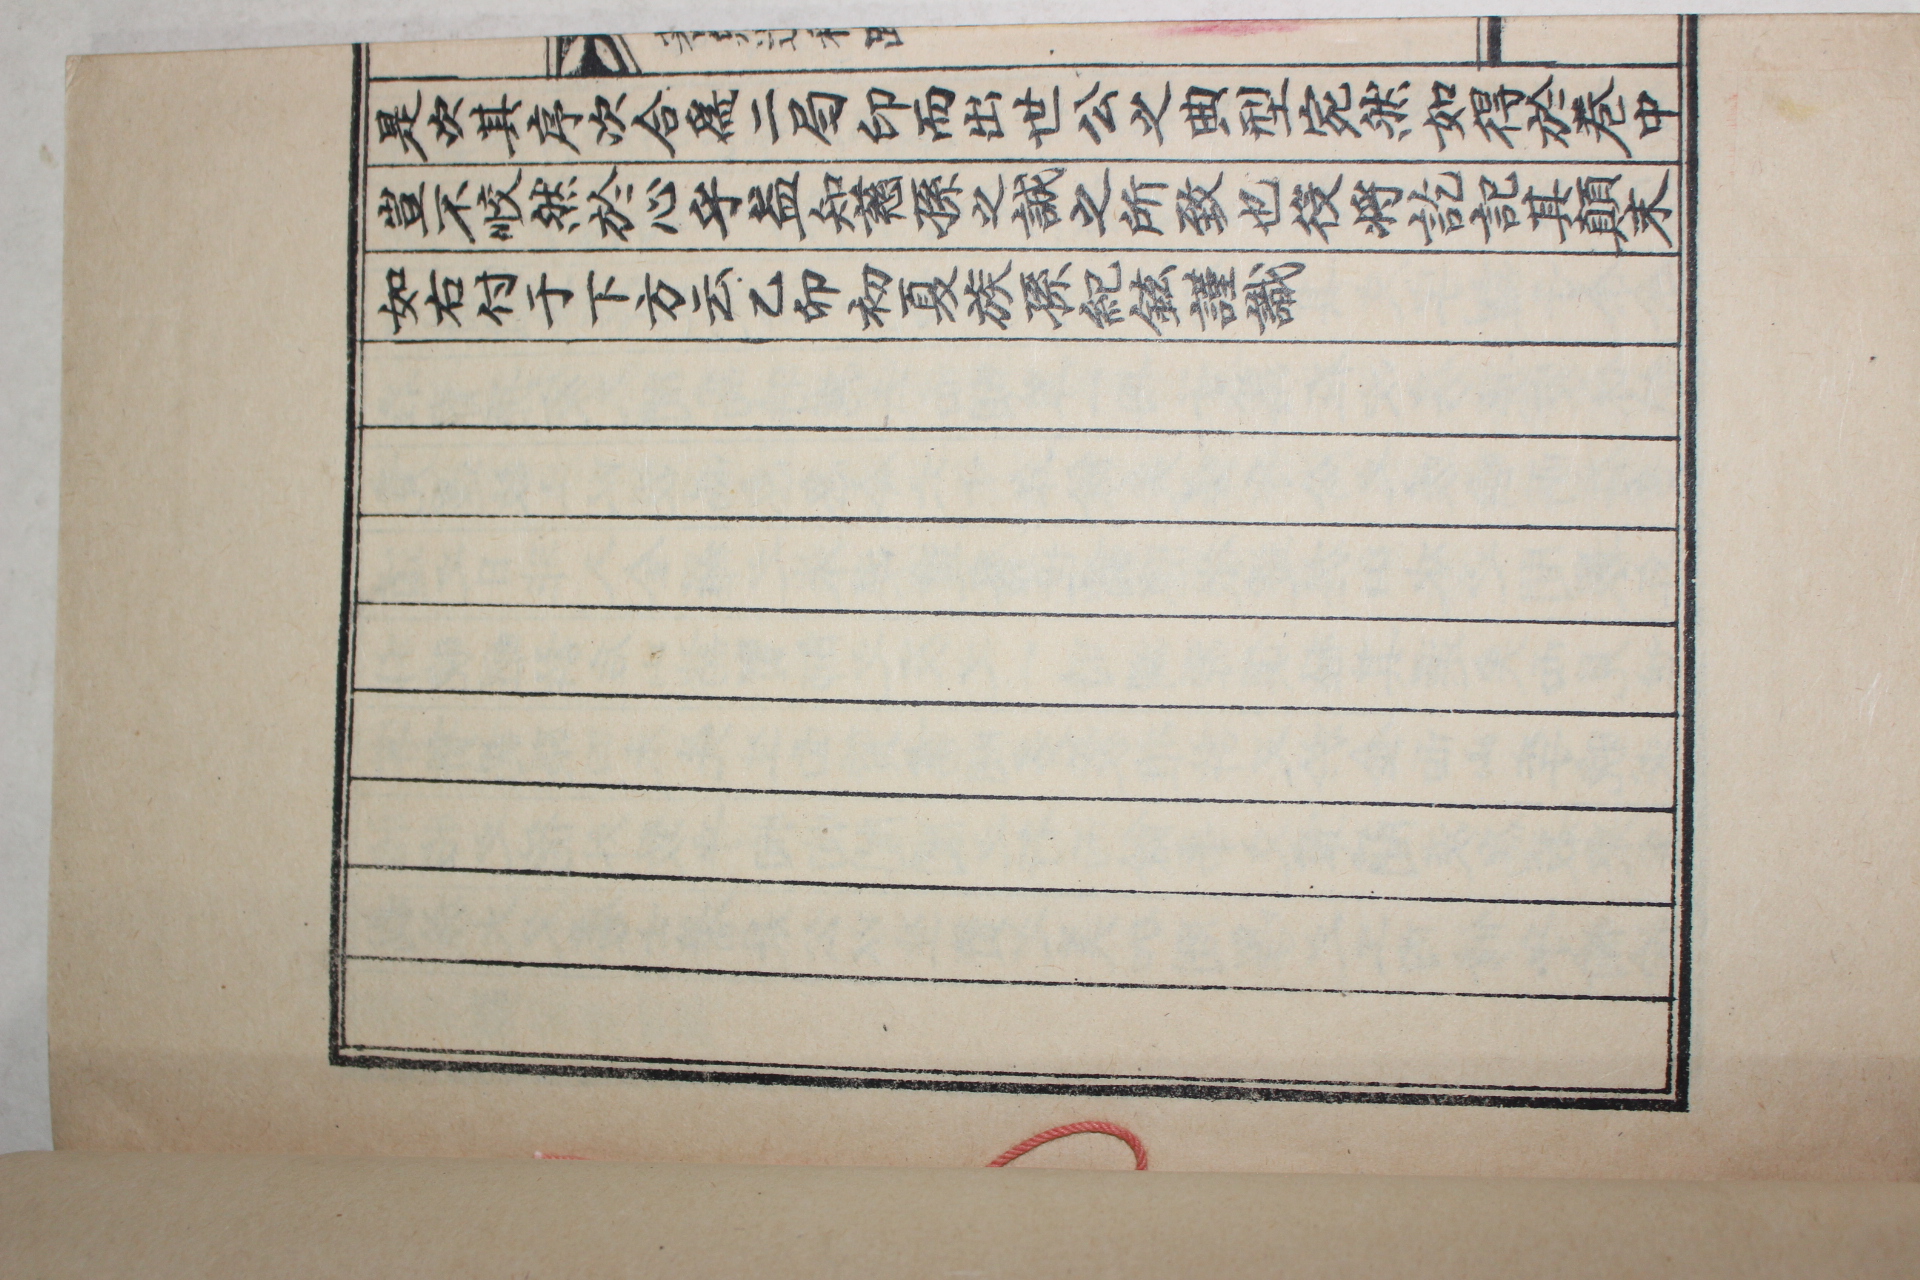 是次其序次合二局印而出世公之典型宛然如得於卷中
豈不恔然於心乎益知慈孫之誠之所致也役將訖記其顚末
如右付于下方云乙卯初夏族孫紀鉉謹識